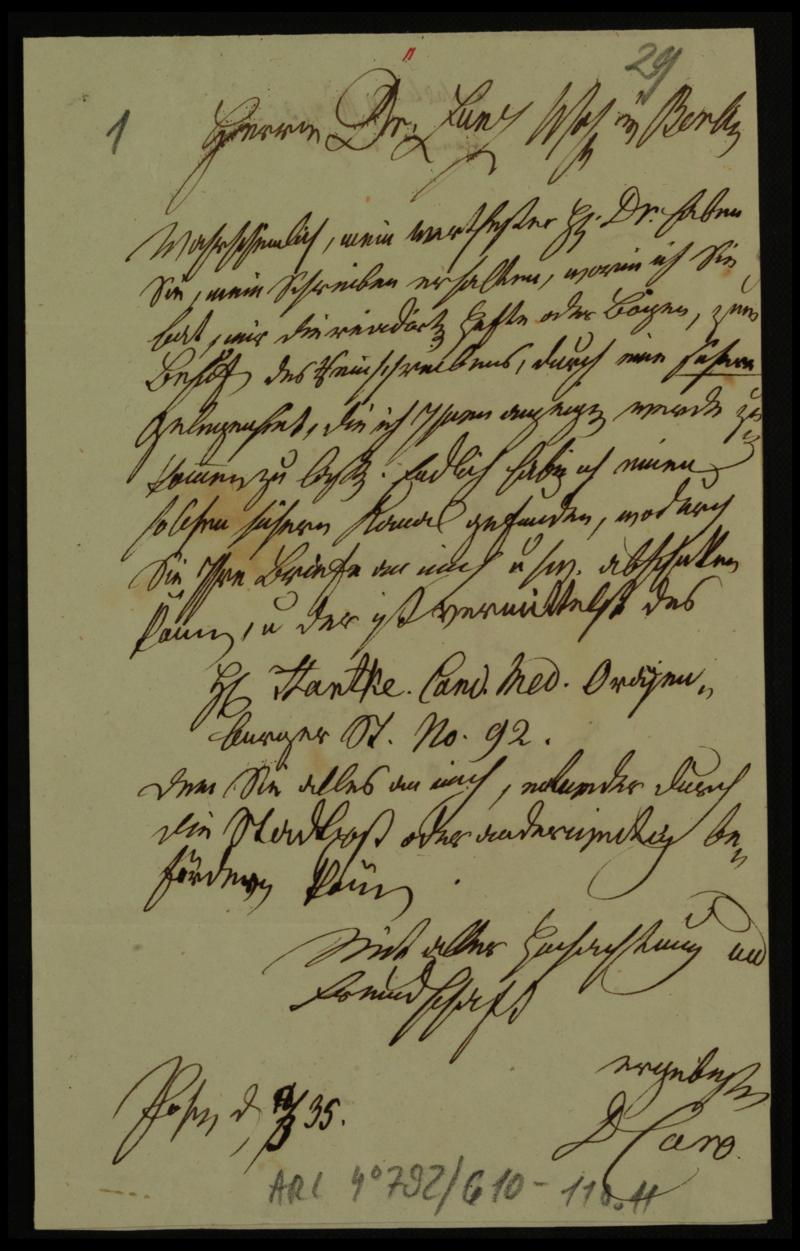 29
1
Herrn Dr. Zunz Wohl. in Berlin
Wahrscheinlich, mein werthester H. Dr. haben
Sie, mein Schreiben erhalten, worin ich Sie
bat, mir die Hefte oder Bögen, zum
Behuf des Einschreibens, durch eine sichere
Gelegenheit, die ich Ihnen anzeigen werde zu
kommen zu lassen. Endlich habe ich einen
solchen sichern Kanal gefunden, wodurch
Sie Ihre Briefe an mich u s.w. abschicken
können, u der ist vermittelst des
H. Hantke. Cand. Med. Oranien,,
burger St. No. 92.
dem Sie alles an mich, entweder durch
die Stadtpost oder anderweitig be,,
fördern können.
Mit aller Hochachtung und
Freundschaft
ergebenster
Posen d 35.
D Caro.
ARC 4° 792/G 10 - 118.11